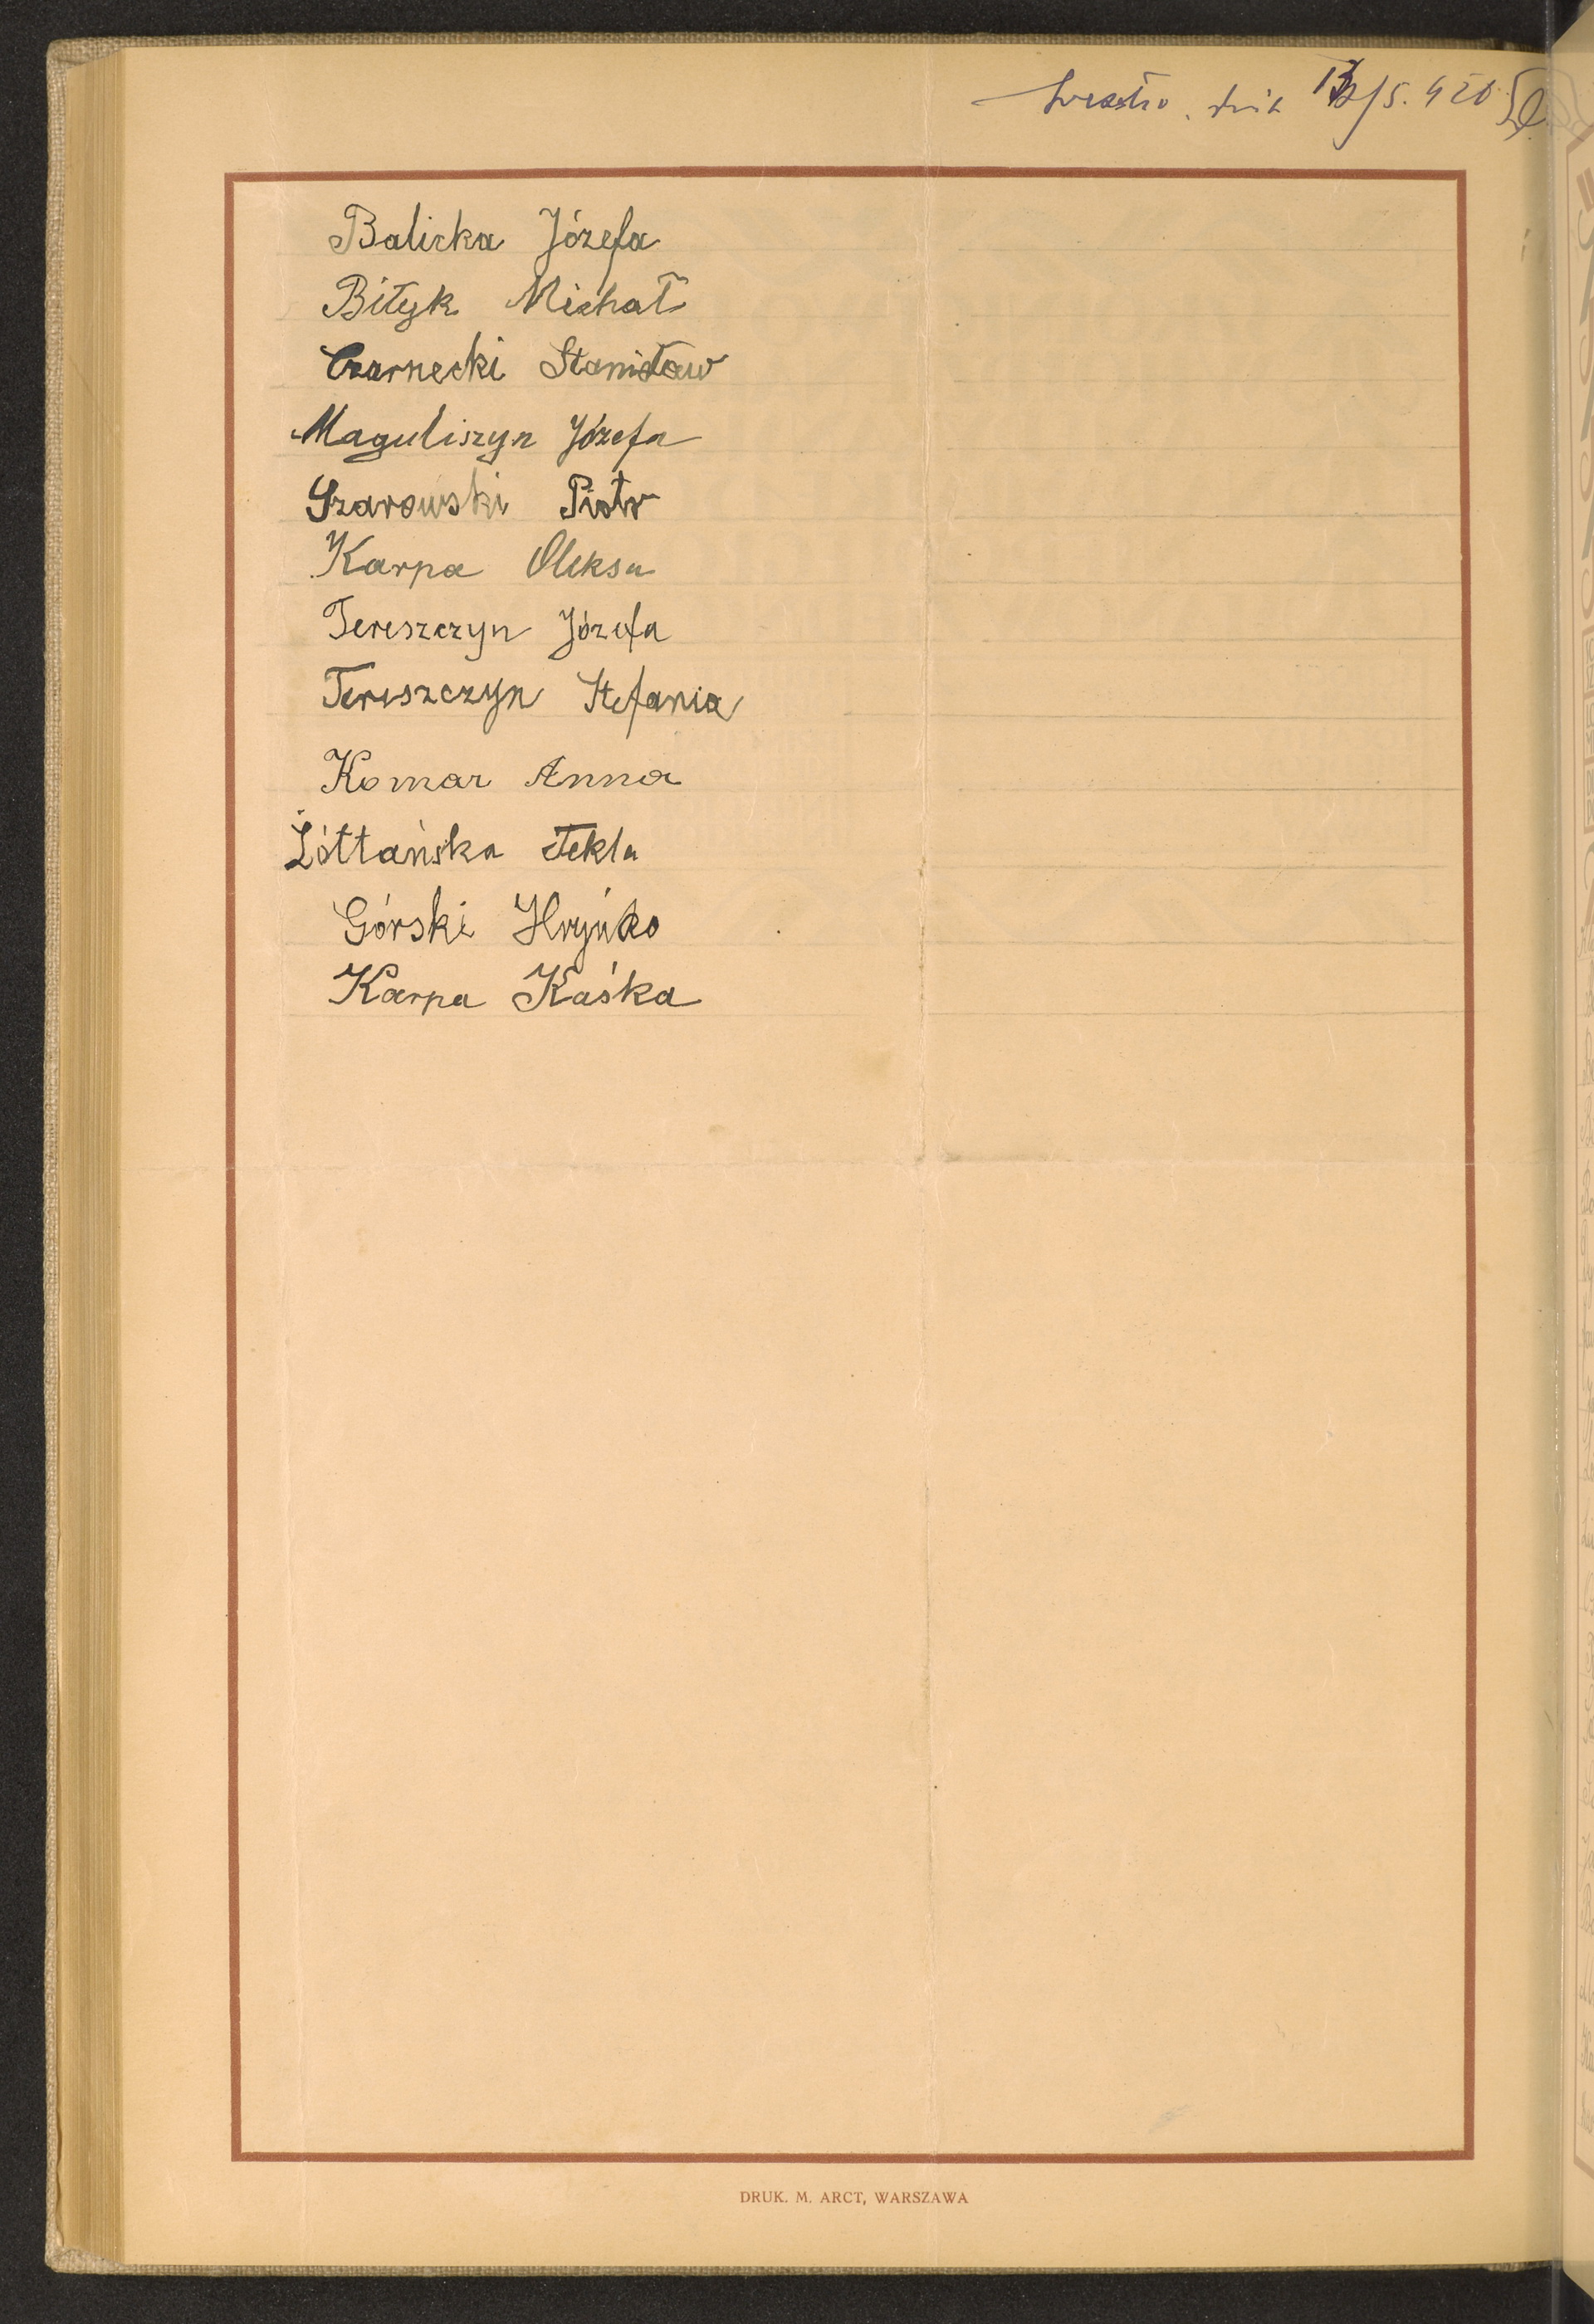 dnia /5. 926
Balicka Józefa
Biłyk Michał
Czarnecki Stanisław
Maguliszyn Józefa
Szarowski Piotr
Karpa Oleksa
Tereszczyn Józefa
Tereszczyn Stefania
Komar Anna
Żółtańska Tekla
Górski Hryńko
Karpa Kaśka
DRUK. M. ARCT, WARSZAWA